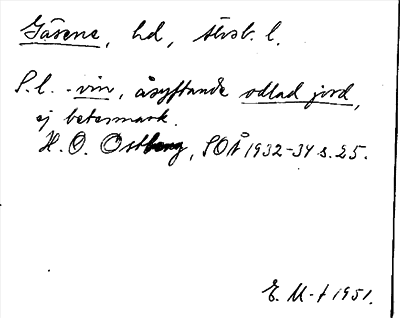 Gäsene, hd, Älvsb. l.
S. l. -vin, åsyftande odlad jord,
ej betesmark.
H. O. Östberg, SOÅ 1932-34 s. 25.
E. M-t 1951.